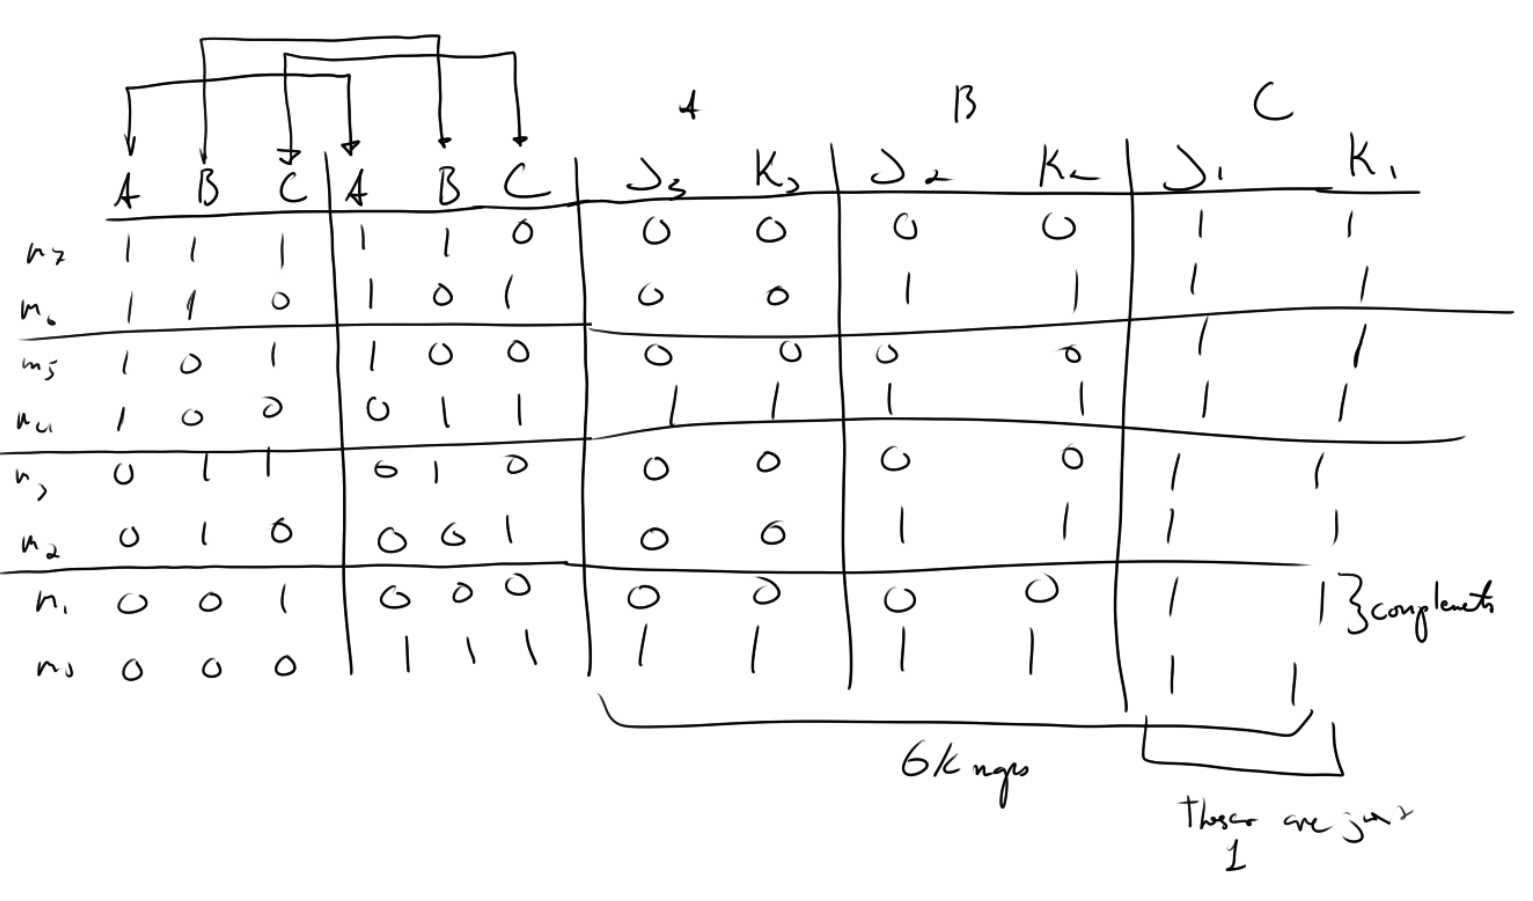 A B C
A B C A B C J3 K3 J2 K2 J1 K1
m7 1 1 1 1 1 0 0 0 0 0 1 1
m6 1 1 0 1 0 1 0 0 1 1 1 1
m5 1 0 1 1 0 0 0 0 0 0 1 1
m4 1 0 0 0 1 1 1 1 1 1 1 1
m3 0 1 1 0 1 0 0 0 0 0 1 1
m2 0 1 0 0 0 1 0 0 1 1 1 1
m1 0 0 1 0 0 0 0 0 0 0 1 1 } complements
m0 0 0 0 1 1 1 1 1 1 1 1 1
6 K maps
These are just
1